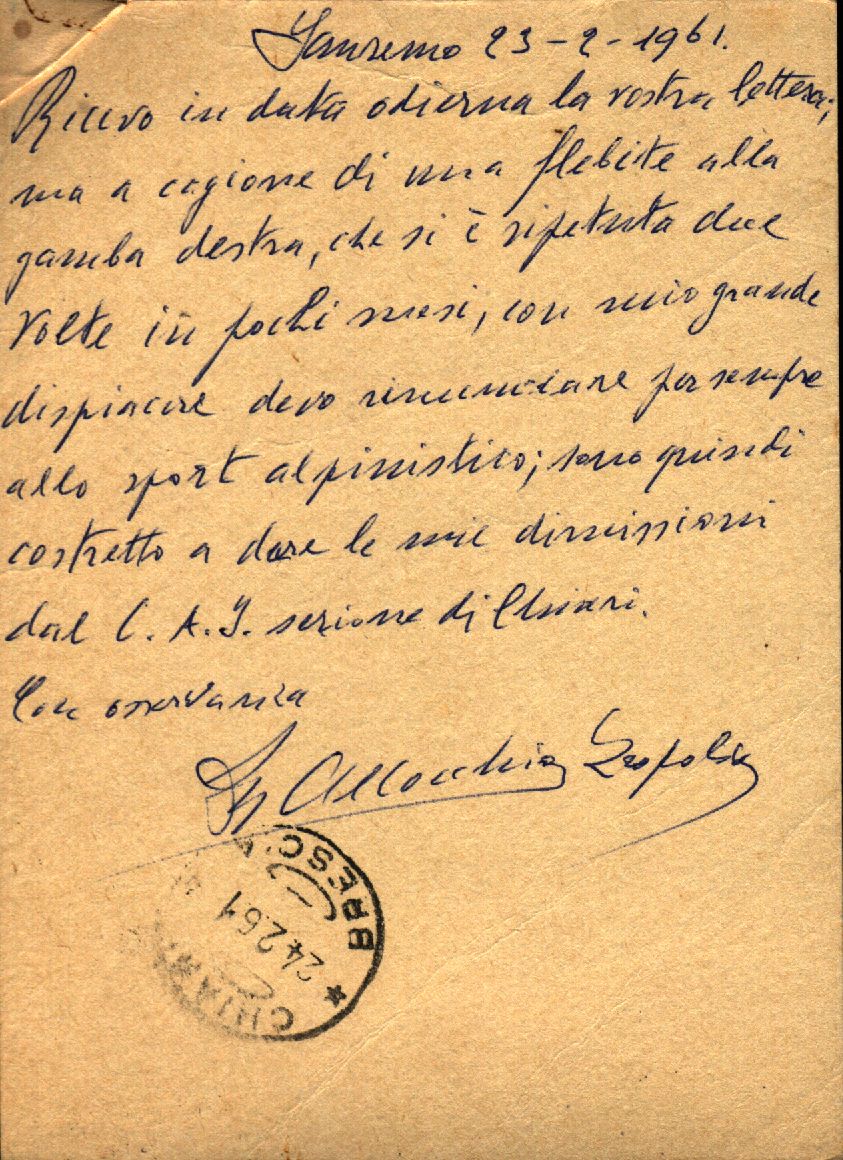 Sanremo 23-2-1961.
Ricevo in data odierna la vostra lettera;
ma a cagione di una flebite alla
gamba destra, che si è ripetuta due
volte in pochi mesi, con mio grande
dispiacere devo rinunciare per sempre
allo sport alpinistico; sono quindi
costretto a dare le mie dimissioni
dal C.A.I. sezione di Chiari.
Con osservanza
Allocchio Leopoldo
BRESCIA
24 2 61
CHIARI